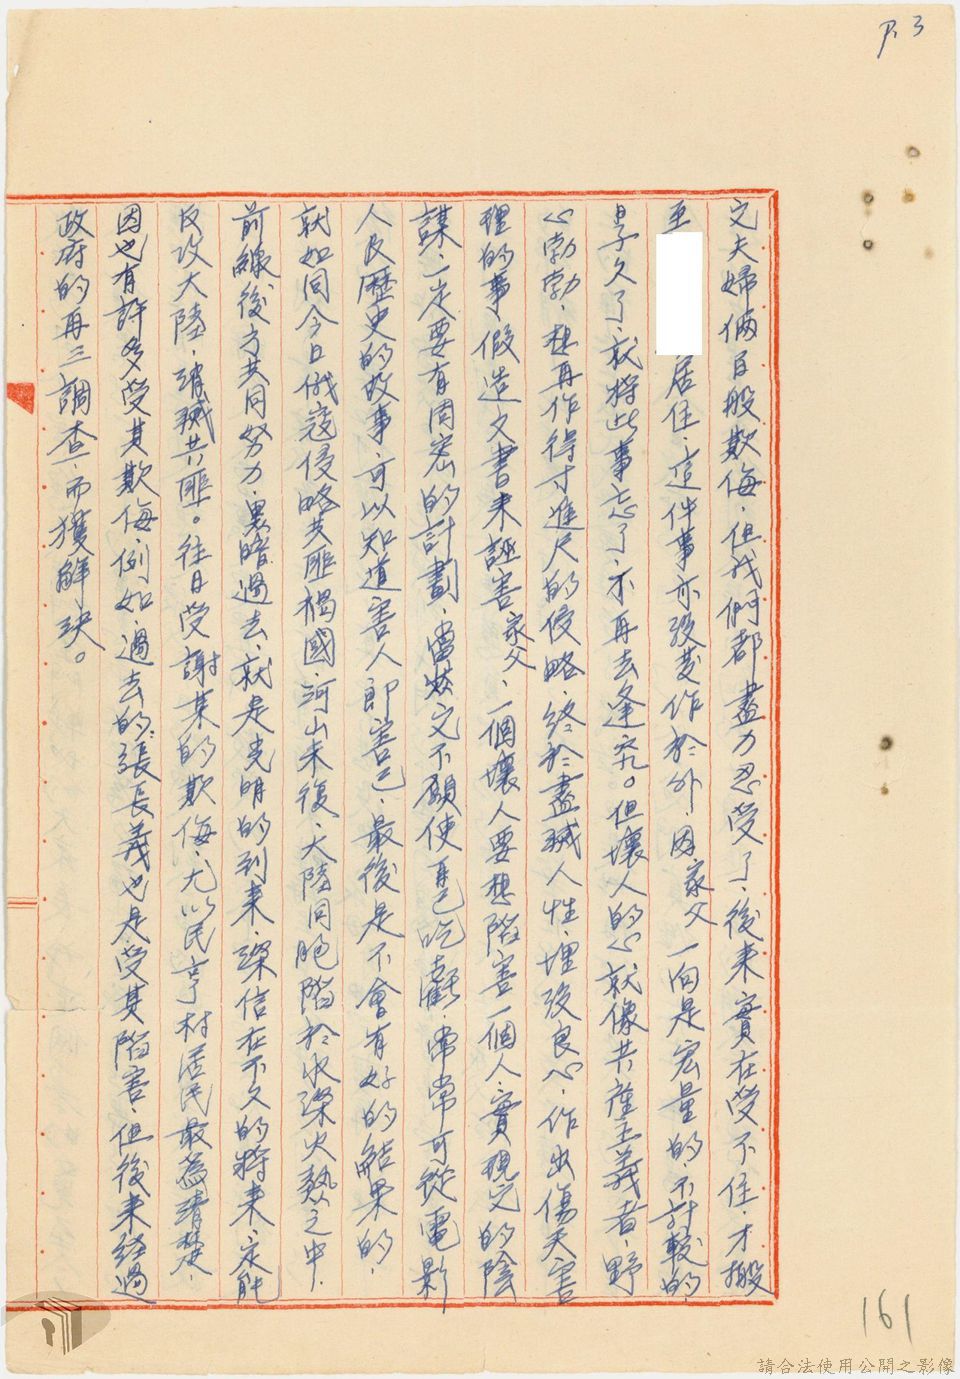 P.3
文夫婦倆百般欺侮，但我們都盡力忍受了，後來實在受不住，才搬
至 居住，這件事亦没發作於外，因家父一向是宏量的，不計較的
日子久了，就將此事忘了，不再去逢究。但壞人的心就像共產主義者，野
心勃勃，想再作得寸進尺的侵略，終於盡滅人性，埋没良心，作出傷天害
理的事，假造文書来誣害家父，一個壞人要想陷害一個人，實現它的陰
謀，一定要有周密的計劃，當然它不願使自己吃虧，常常可從電影
人民歷史的故事，可以知道害人即害己，最後是不會有好的結果的，
就如同今日俄寇侵略共匪禍國，河山未復，大陸同胞陷於水深火熱之中，
前線後方共同努力，黑暗過去，就是光明的到来，深信在不久的將来，定能
反攻大陸，消滅共匪。往日受謝某的欺侮，尤以民享村居民最為清楚，
因也有許多受其欺侮，例如，過去的張長義也是受其陷害，但後来經過
政府的再三調查，而獲解決。
161
請合法使用公開之影像